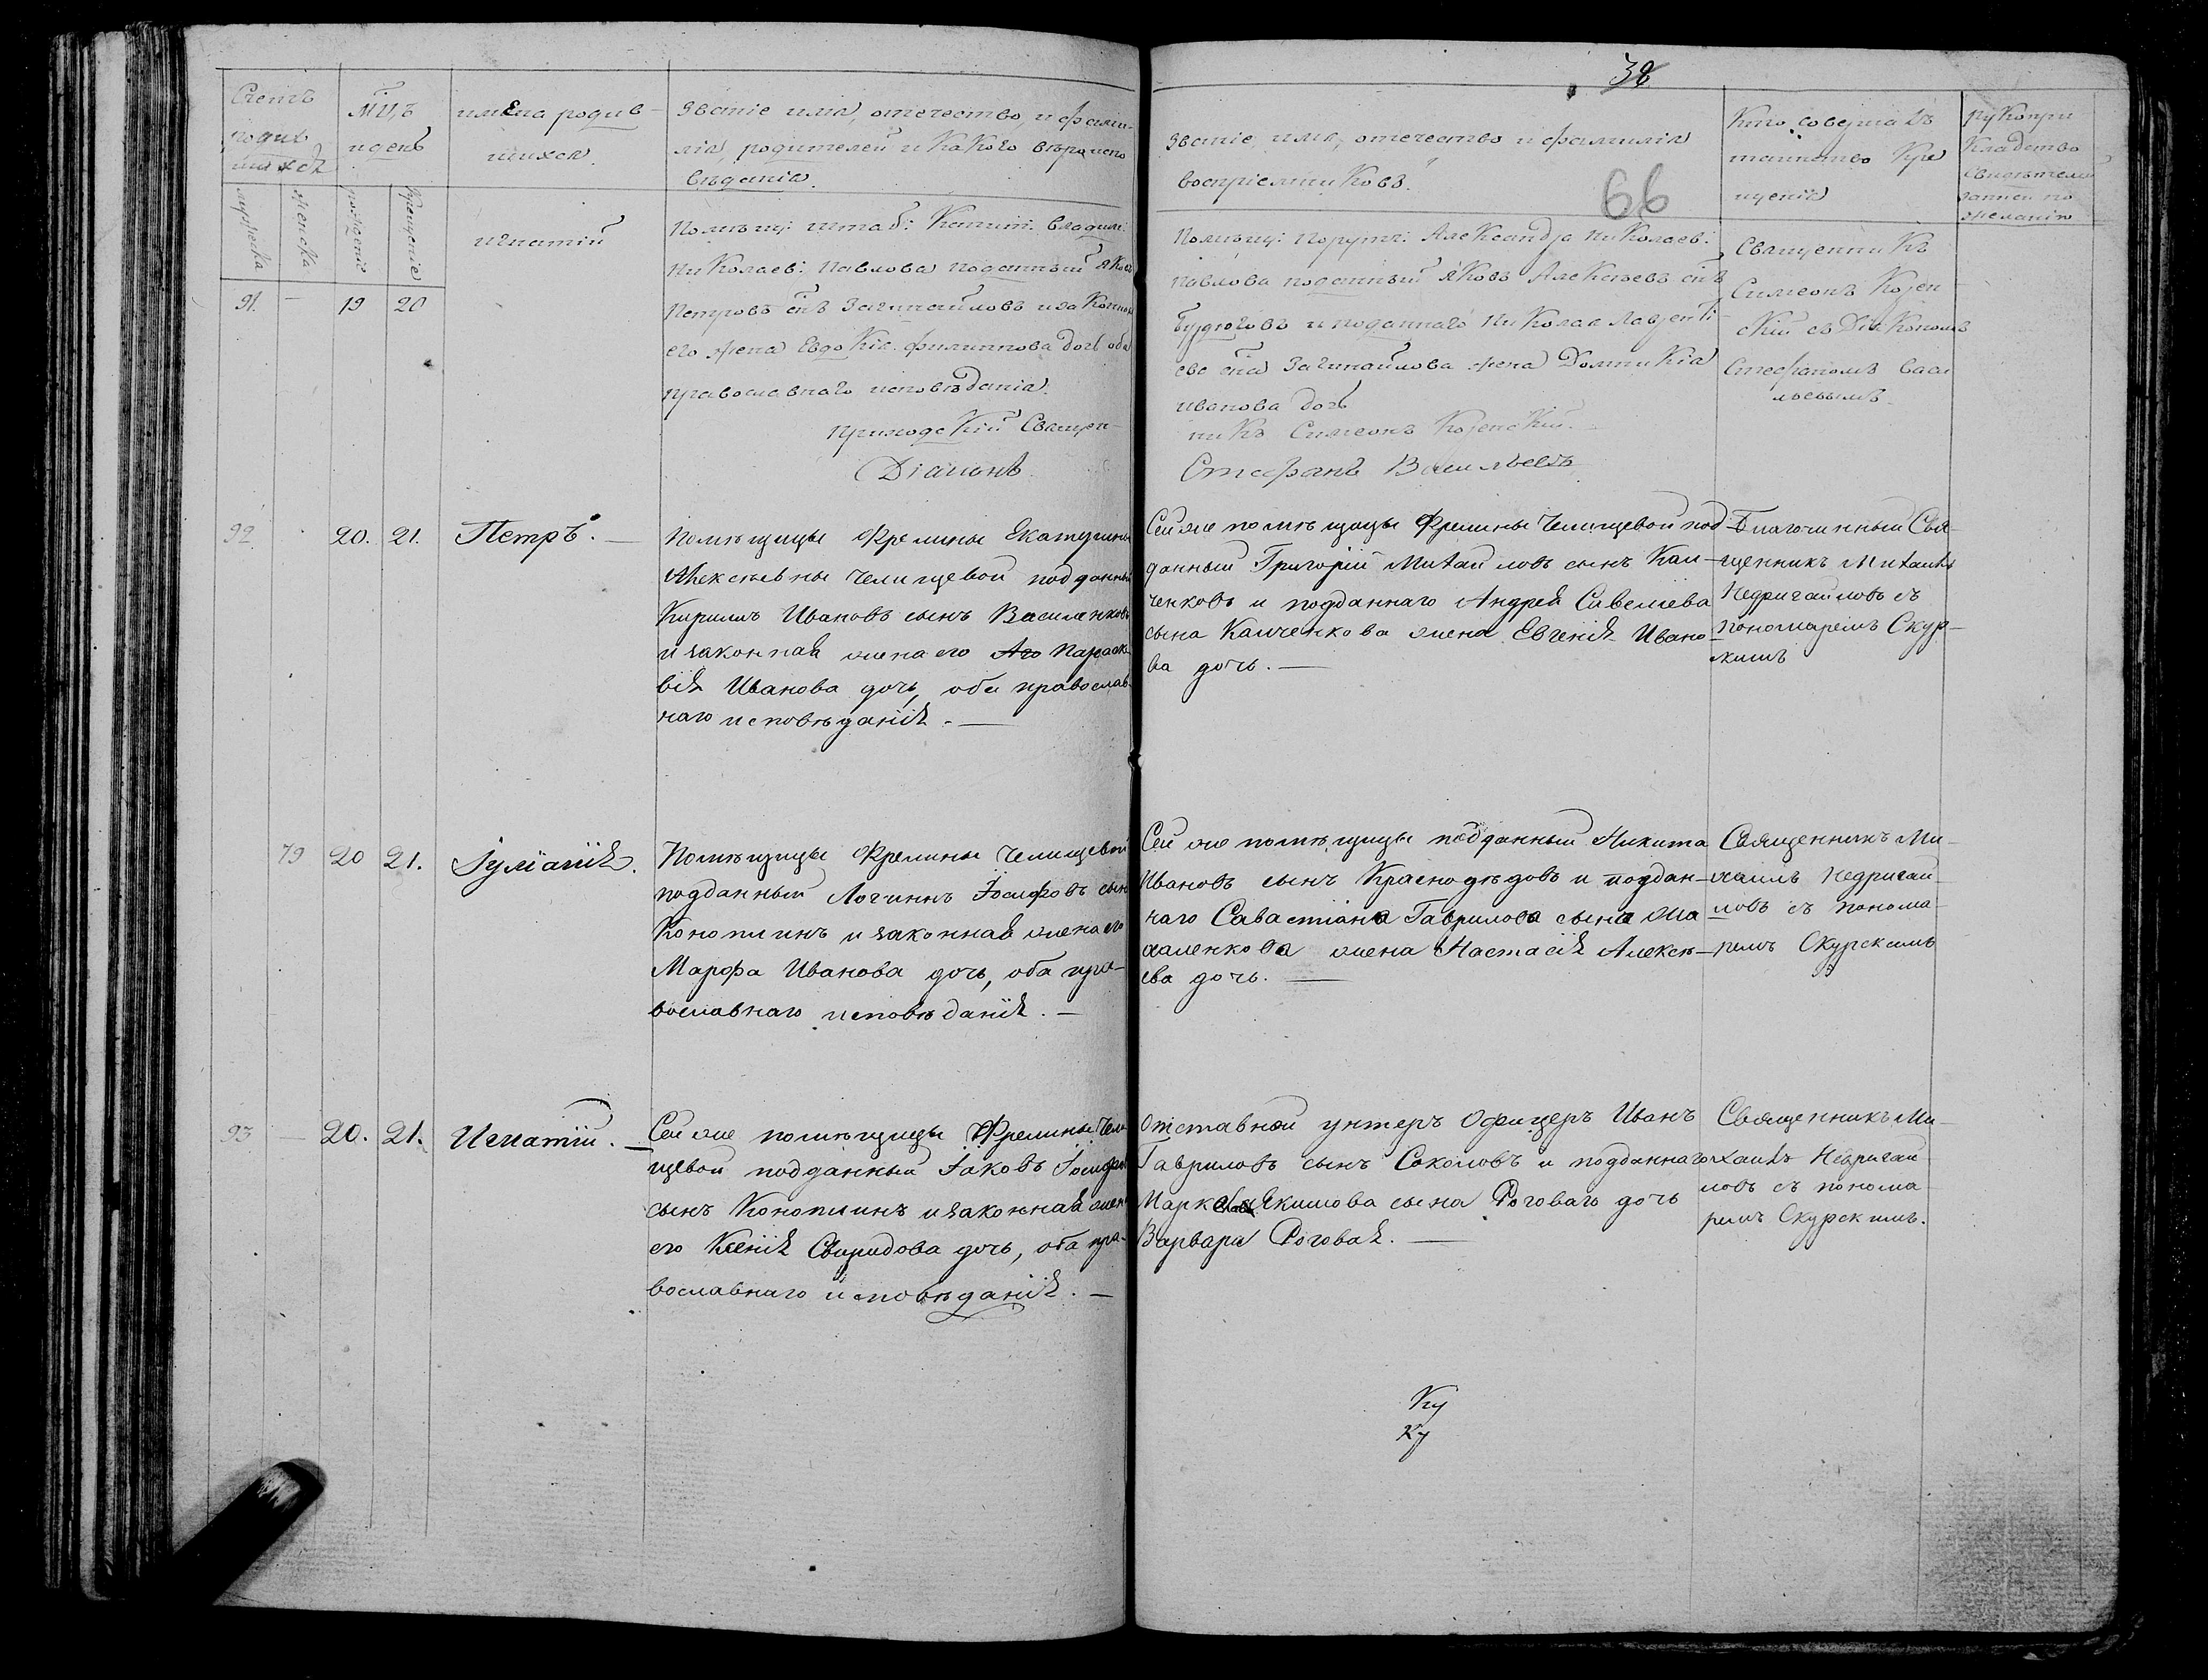 38
66
Счетъ
родив
шихся
мужеска
женска
мц,ъ
и день
рожденіе
крещеніе
имена родив-
шихся.
Званіе имя, отечество, и фами-
лія, родителей и Какого вѣроиспо
вѣданія.
Званіе, имя, отечество и фамилія
воспріемниковъ.
Кто совершалъ
таинство Кре
щенія
рукопри
Кладство
свидѣтелей
записи по
желанію
91. — 19 20
игнатій
Помѣщ: штаб: Капит: Владим:
Николаев: Павлова подданный Яковъ
Петровъ снъ Загинайловъ и законная
его жена Евдокія Филиппова дочь оба
православнаго исповѣданія.
Приходскій Священ-
Діаконъ
Помѣщ: Поруч: Александра Николаев:
Павлова подданный Яковъ Алексѣевъ снъ
и подданнаго Николая Лаврентi
ева сна Загинайлова жена Домникія
иванова дочь
никъ Симеонъ Козенскій.
Стефанъ Васильевъ
Священникъ
Симеонъ Козен
скій съ Діакономъ
Стефаномъ Васи
льевымъ.
92. 20. 21. Петръ. —
Помѣщицы Фрелины Екатерины
Алексѣевны Челищевой подданный
Кирилъ Ивановъ сынъ Василенковъ
и законная жена его Параске
вія Иванова дочь, оба православ
наго исповѣданія. —
Сей же помѣщицы Фрелины Челищевой под-
данный Григорій Михайловъ сынъ Кли-
ченковъ и подданнаго Андрея Савелиева
сына Каиченкова жена Евгенія Ивано-
ва дочь. —
Благочинный Свя-
щенникъ Михаилъ
Недригайловъ съ
пономаремъ Скур-
скимъ
79 20 21. Іуліанія.
Помѣщицы Фрелины Челищевой
подданный Логинъ Іосифовъ сынъ
Коноплинъ и законная жена его
Марфа Иванова дочь, оба пра-
вославнаго исповѣданія. —
Сей же помѣщицы подданный Никита
Ивановъ сынъ Краснодѣдовъ и поддан-
наго Савастіяна Гаврилова сына Ми
халенкова жена Настасія Алексѣ-
ева дочь. —
Священникъ Ми-
хаилъ Недригай-
ловъ съ понома-
ремъ Скурскимъ
93 — 20. 21. Игнатій. —
Сей же помѣщицы Фрелины Чели
щевой подданный Іаковъ Іосифовъ
сынъ Коноплинъ и законная жена
его Ксенія Свиридова дочь, оба пра-
вославнаго исповѣданія. —
Отставной унтеръ Офицеръ Иванъ
Гавриловъ сынъ Соколовъ и подданнаго
Марка Якимова сына Роговаго дочь
Варвара Роговая. —
Священникъ Ми-
хаилъ Недригай
ловъ съ понома
ремъ Скурскимъ.
Ку
Ку